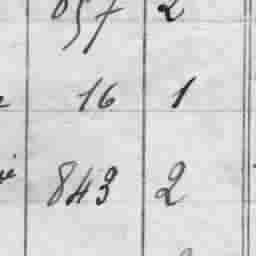 857 2
16 1
843 2